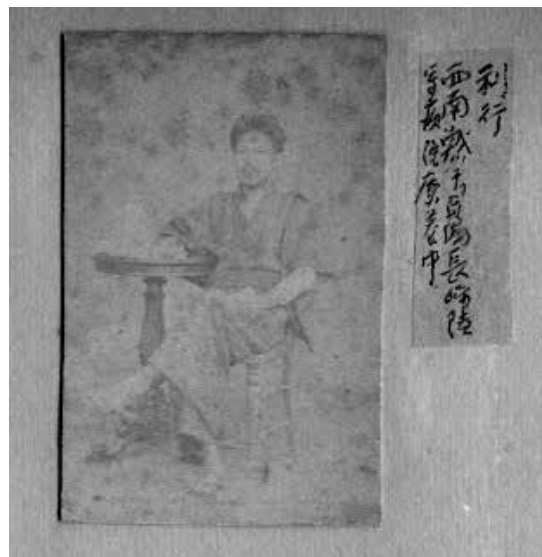 利行
西南戦ニテ負傷長崎陸
軍病院療養中